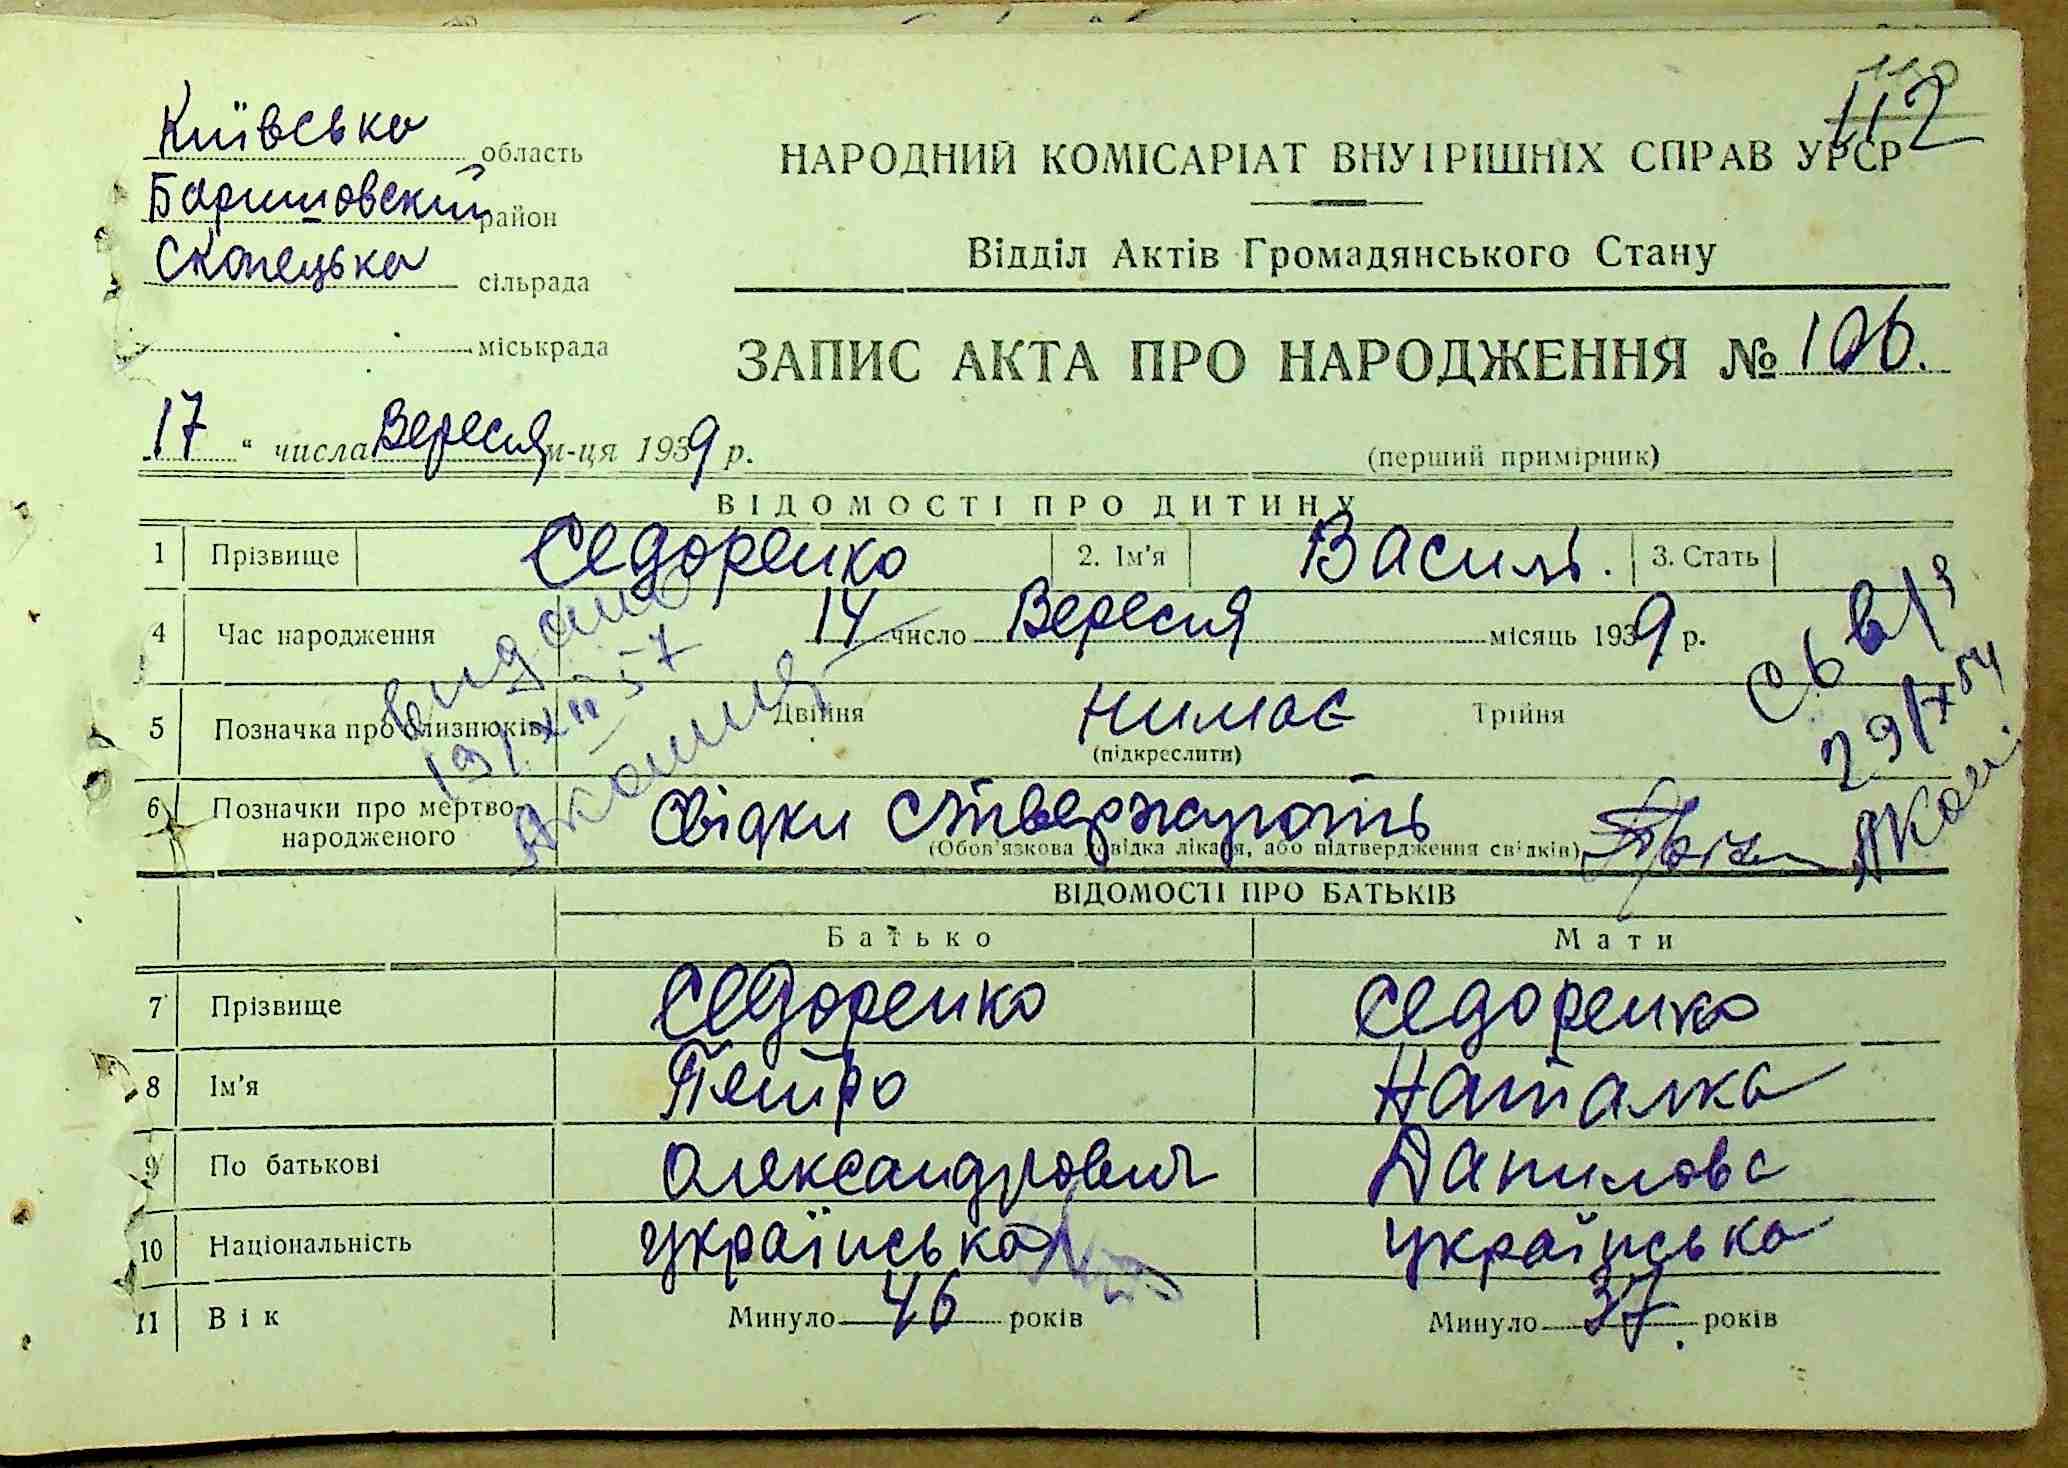 112
Київська область
Баришовский район
Скопецька сільрада
міськрада
НАРОДНИЙ КОМІСАРІАТ ВНУТРІШНІХ СПРАВ УРСР
Відділ Актів Громадянського Стану
ЗАПИС АКТА ПРО НАРОДЖЕННЯ № 106.
17 " числа Вересня м-ця 1939 р.
(перший примірник)
ВІДОМОСТІ ПРО ДИТИНУ
1 Прізвище Седоренко 2. Ім'я Василь. 3. Стать
4 Час народження 14 число Вересня місяць 1939 р.
5 Позначка про близнюків Двійня нимає Трійня
(підкреслити)
6 Позначки про мертво-
народженого Свідки ствержують
(Обов'язкова довідка лікаря, або підтвердження свідків)
видано
19/XII 57
29/X 54
ВІДОМОСТІ ПРО БАТЬКІВ
Батько Мати
7 Прізвище Седоренко Седоренко
8 Ім'я Петро Наталка
9 По батькові Олександрович Данилова
10 Національність українська українська
11 Вік Минуло 46 років Минуло 37 років